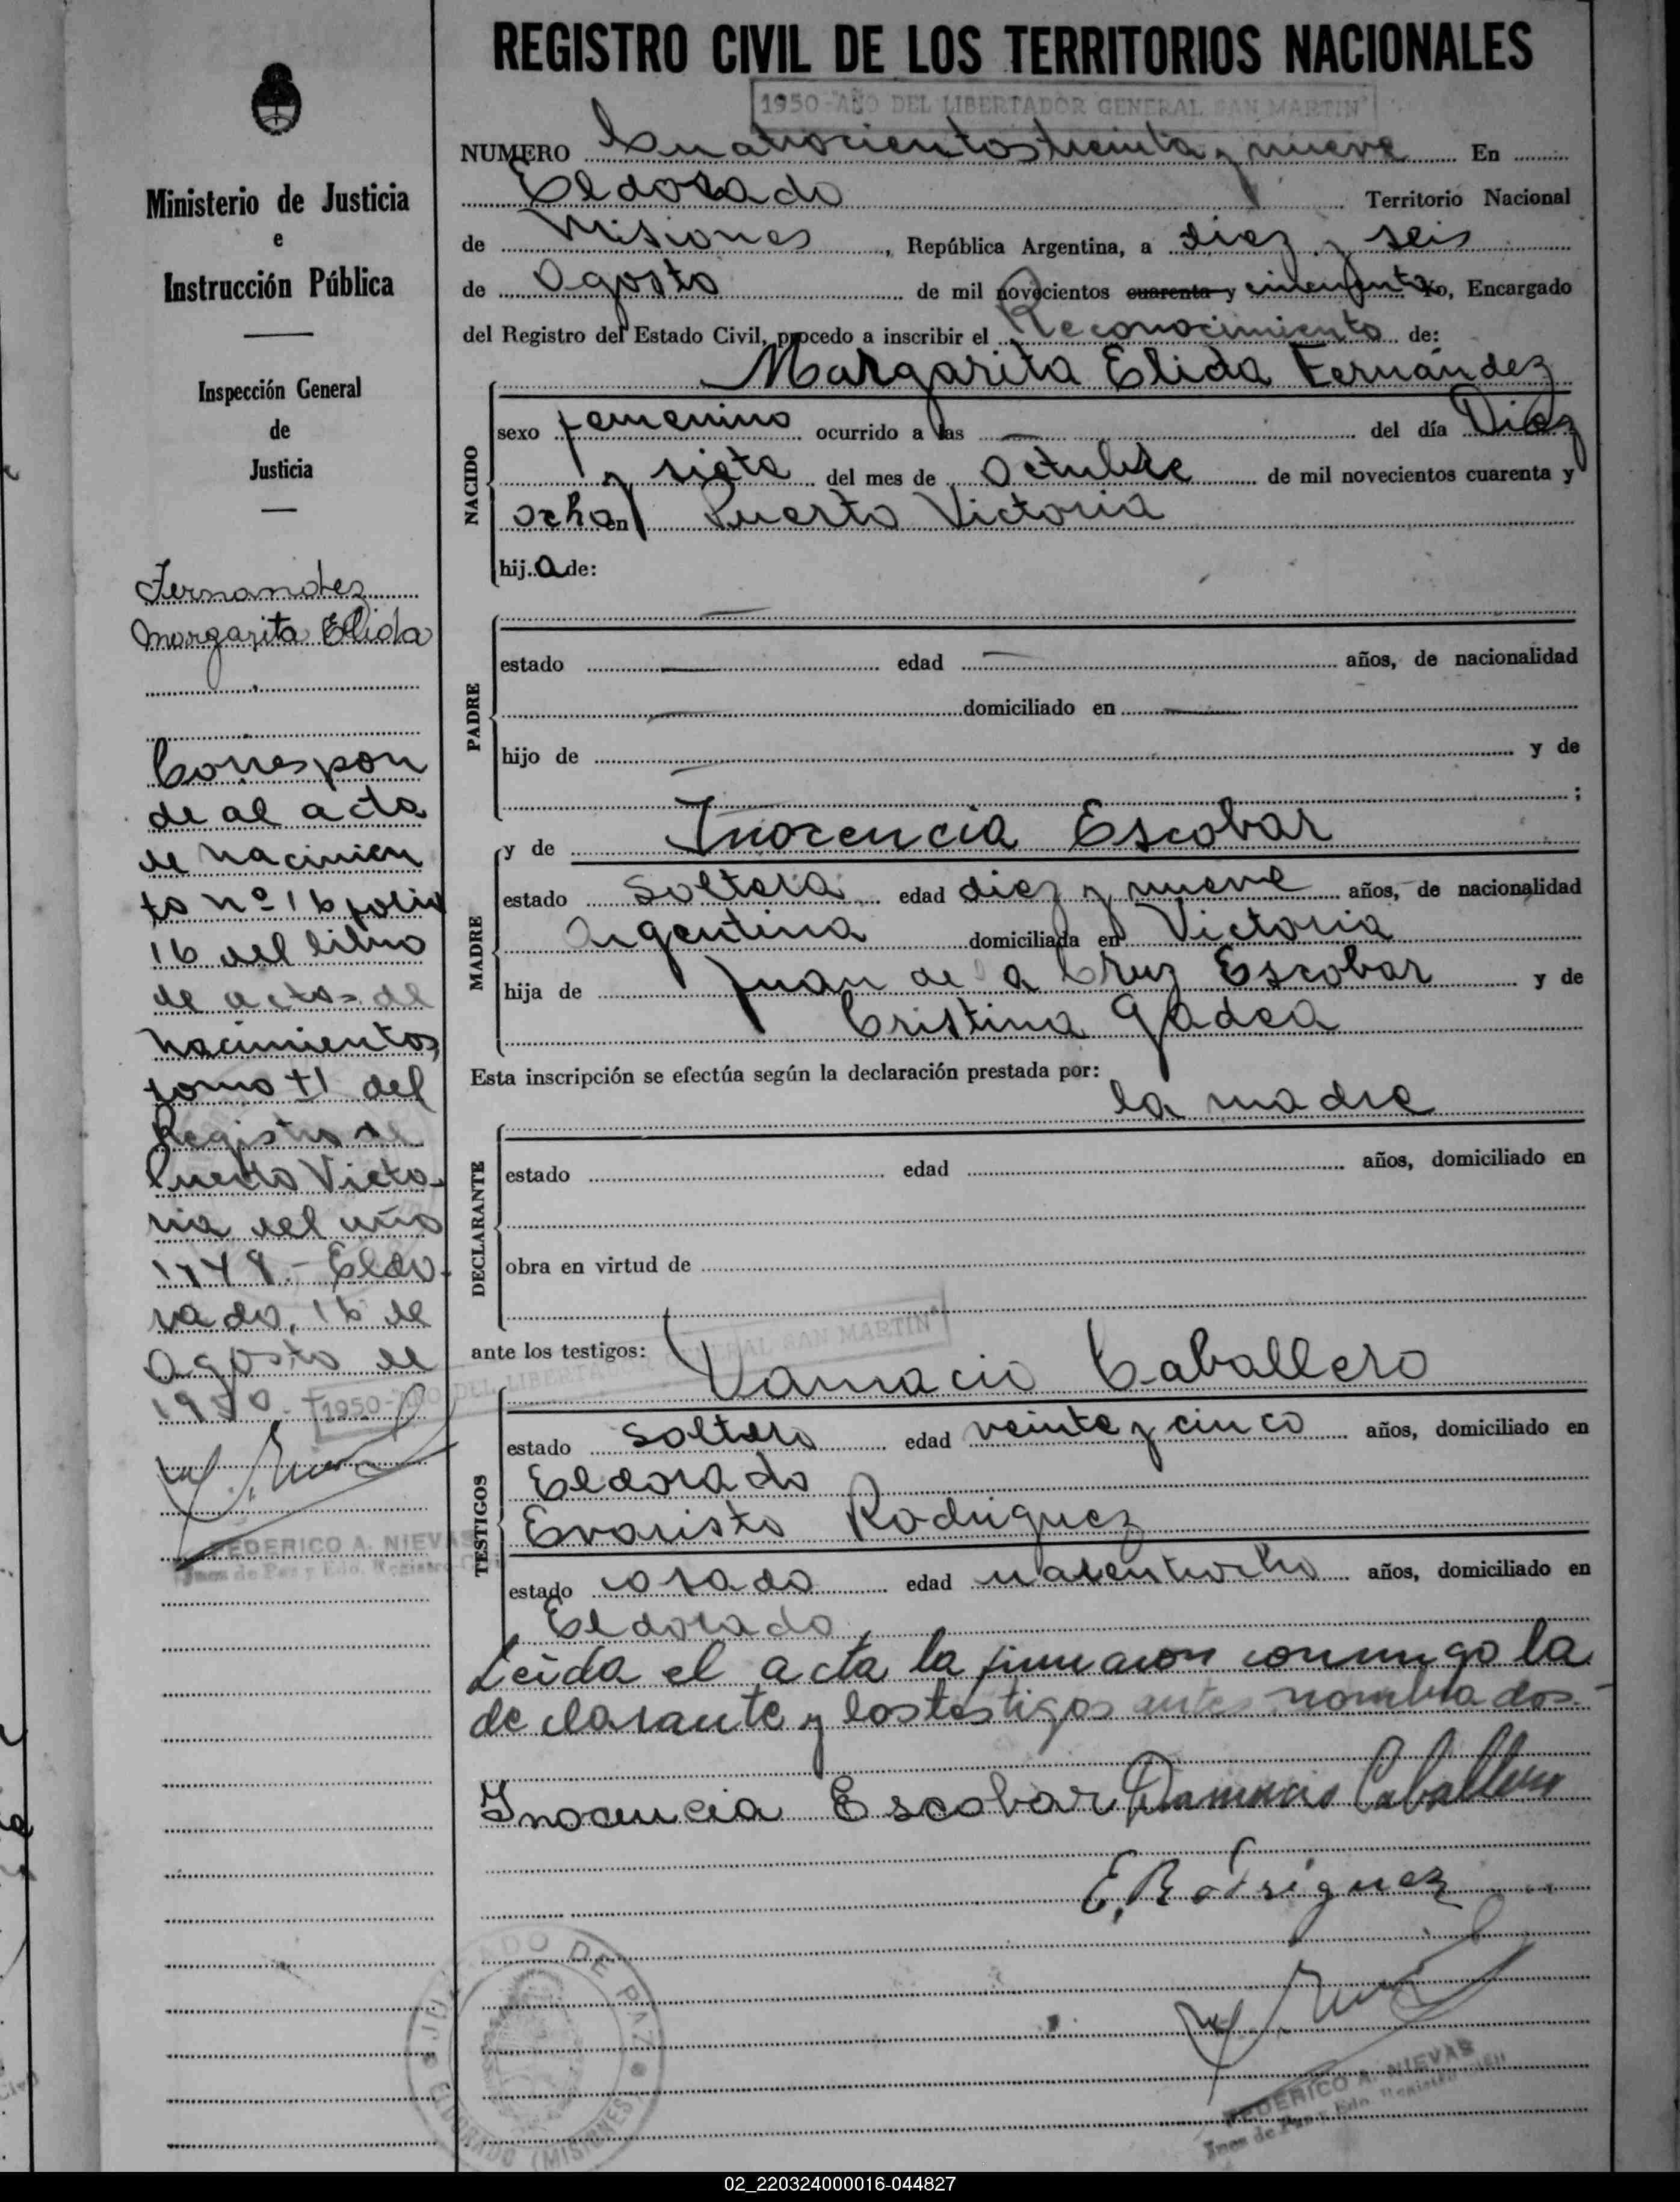 REGISTRO CIVIL DE LOS TERRITORIOS NACIONALES
1950-"AÑO DEL LIBERTADOR GENERAL SAN MARTIN"
Ministerio de Justicia
e
Instrucción Pública
Inspección General
de
Justicia
Fernandez
Margarita Elida
Correspon
de al acta
de nacimien
to nº 16 folio
16 del libro
de actas de
nacimientos,
tomo del
Registro de
Puerto Victo-
ria del año
1948.- Eldo-
rado, 16 de
Agosto de
1950.-
1950-"AÑO DEL LIBERTADOR GENERAL SAN MARTIN"
FEDERICO A. NIEVAS
Juez de Paz y Edo. Registro
NUMERO Cuatrocientos treinta y nueve En
Eldorado Territorio Nacional
de Misiones, República Argentina, a diez y seis
de Agosto de mil novecientos cuarenta y cincuenta Yo, Encargado
del Registro del Estado Civil, procedo a inscribir el Reconocimiento de:
NACIDO
Margarita Elida Fernández
sexo femenino ocurrido a las — del día Diez
y siete del mes de Octubre de mil novecientos cuarenta y
ocho en Puerto Victoria
hija de:
PADRE
—
estado — edad — años, de nacionalidad
— domiciliado en —
hijo de — y de
;
MADRE
y de Inocencia Escobar
estado soltera edad diez y nueve años, de nacionalidad
Argentina domiciliada en Victoria
hija de Juan de la Cruz Escobar y de
Cristina Gadea
Esta inscripción se efectúa según la declaración prestada por:
la madre
DECLARANTE
estado edad años, domiciliado en
obra en virtud de
ante los testigos:
TESTIGOS
Damacio Caballero
estado soltero edad veinte y cinco años, domiciliado en
Eldorado
Evaristo Rodriguez
estado casado edad años, domiciliado en
Eldorado
Leida el acta la firmaron conmigo la
declarante y los testigos antes nombrados.-
Inocencia Escobar Damacio Caballero
E. Rodriguez
JUZGADO DE PAZ
ELDORADO (MISIONES)
FEDERICO A. NIEVAS
Juez de Paz y Edo. Registro
02_220324000016-044827